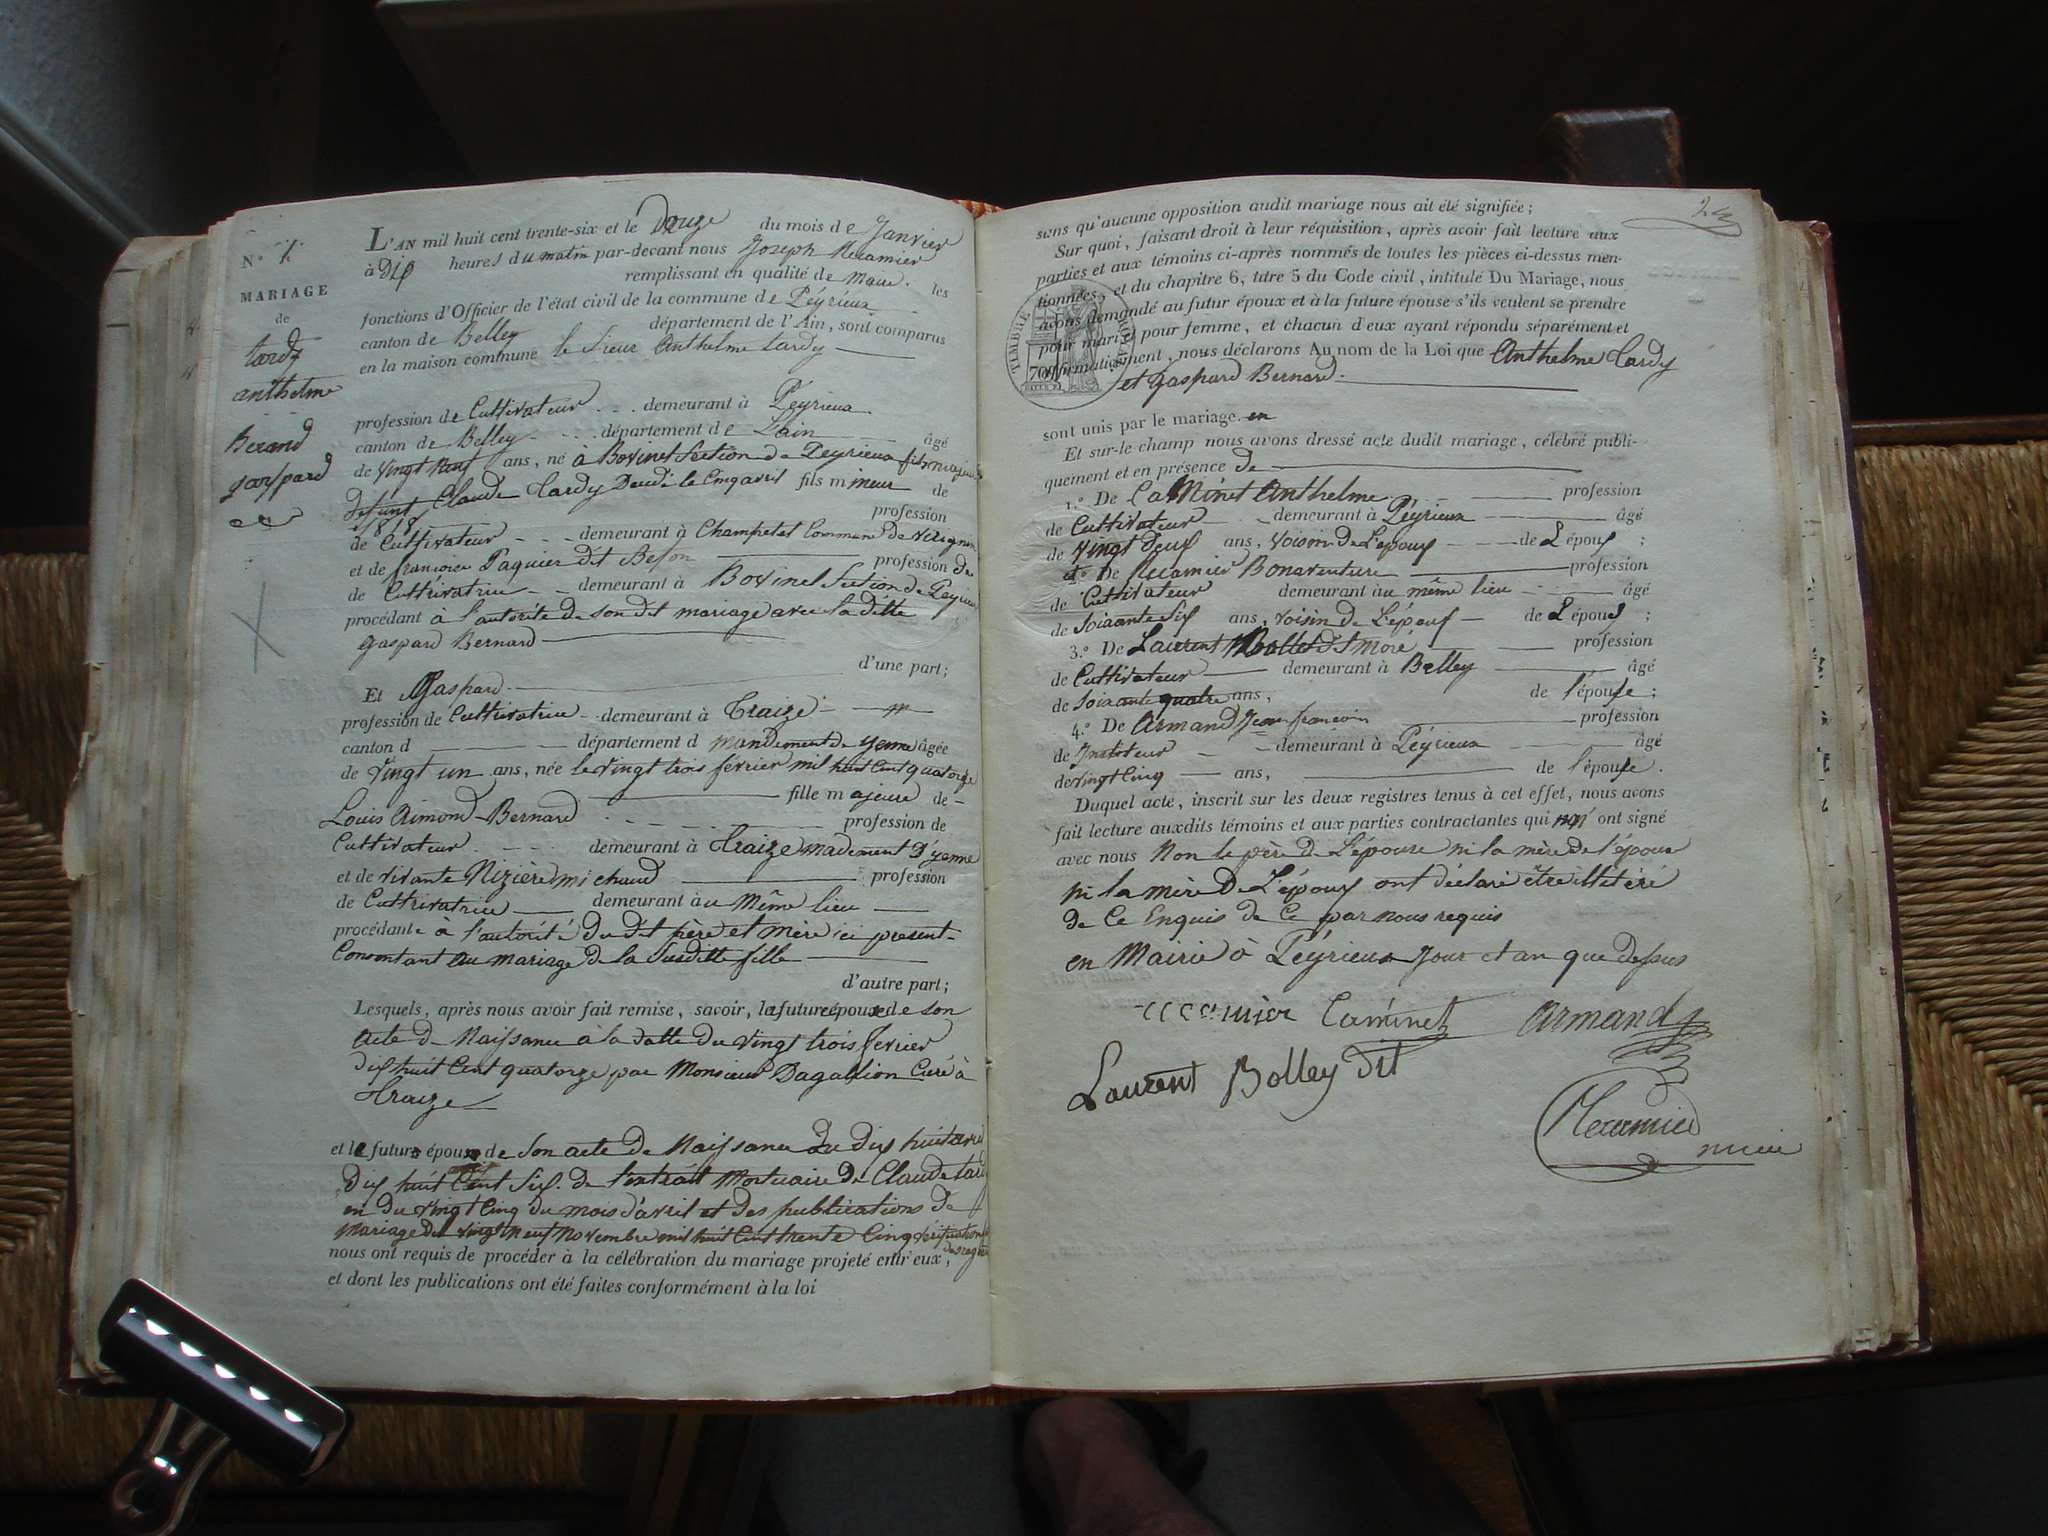 N.° 1.
MARIAGE
de
tardy
anthelme
Berand
gaspard
L'AN mil huit cent trente-six et le Douze du mois de Janvier
à Dix heures du matin par-devant nous Joseph Recamier
remplissant en qualité de Maire. les
fonctions d'Officier de l'état civil de la commune de Péyrieux
canton de Belley département de l'Ain, sont comparus
en la maison commune le Sieur Anthelme tardy
profession de Cultivateur demeurant à Péyrieux
canton de Belley département de Lain âgé
de vingt neuf ans, né à Bovinel Section de Peyrieux fils majeur
defunt Claude Tardy Decedé le Cinq avril fils mineur de
1818 profession
de Cultivateur demeurant à Champtel Commune de
et de francoise Paquier dit Beson profession de
de Cultivatrice demeurant à Bovinel Section de Peyrieux
procédant à l'autorité de son dit mariage avec la ditte
gaspard Bernard
d'une part;
Et Gaspard
profession de Cultivatrice demeurant à Traize
canton d département d mandement de yenne âgée
de vingt un ans, née le vingt trois février mil huit cent quatorze
fille majeure de
Louis Aimond Bernard profession de
Cultivateur demeurant à Traize madement D'yenne
et de vivante Nizière michaud profession
de Cultivatrice demeurant au même lieu
procédante à l'autorité du dit père et mère ici present
Consentant au mariage de la Susditte fille
d'autre part;
Lesquels, après nous avoir fait remise, savoir, la future épouse de son
acte de Naissance à la datte du vingt trois fevrier
dix huit Cent quatorze par Monsieur Dagallion Curé à
Traize
et le futur époux de Son acte de Naissance du dix huit avril
dix huit Cent Six. de l'extrait Mortuaire de Claude tardy
en du vingt Cinq du mois d'avril et des publications de
Mariage du vingt neuf Novembre mil huit Cent trente Cinq
nous ont requis de procéder à la célébration du mariage projeté entr'eux,
et dont les publications ont été faites conformément à la loi
sans qu'aucune opposition audit mariage nous ait été signifiée;
Sur quoi, faisant droit à leur réquisition, après avoir fait lecture aux
parties et aux témoins ci-après nommés de toutes les pièces ci-dessus men-
tionnées, et du chapitre 6, titre 5 du Code civil, intitulé Du Mariage, nous
avons demandé au futur époux et à la future épouse s'ils veulent se prendre
pour mari et pour femme, et chacun d'eux ayant répondu séparément et
affirmativement, nous déclarons Au nom de la Loi que Anthelme Tardy
et gaspard Bernard.
TIMBRE ROYAL
sont unis par le mariage. en
Et sur-le champ nous avons dressé acte dudit mariage, célébré publi-
quement et en présence de
1.° De Caminet Anthelme profession
de Cultivateur demeurant à Péyrieux âgé
de vingt deux ans, voisin de L'epoux de L'époux;
2.° De Recamier Bonaventure profession
de Cultivateur demeurant au même lieu âgé
de soixante six ans, voisin de L'époux de L'époux;
3.° De Laurent Bollet dit Moré profession
de Cultivateur demeurant à Belley âgé
de Soixante quatre ans, de l'épouse;
4.° De Armand Jean francois profession
de Instituteur demeurant à Péyrieux âgé
de vingt Cinq ans, de l'épouse.
Duquel acte, inscrit sur les deux registres tenus à cet effet, nous avons
fait lecture auxdits témoins et aux parties contractantes qui ont signé
avec nous Non le père de L'épouse ni la mère de l'épouse
ni la mère de L'époux ont déclaré être illitéré
de Ce Enquis de Ce par nous requis
en Mairie à Péyrieux Jour et an que dessus
Caminet Armand
Laurent Bolley dit
Recamier
maire